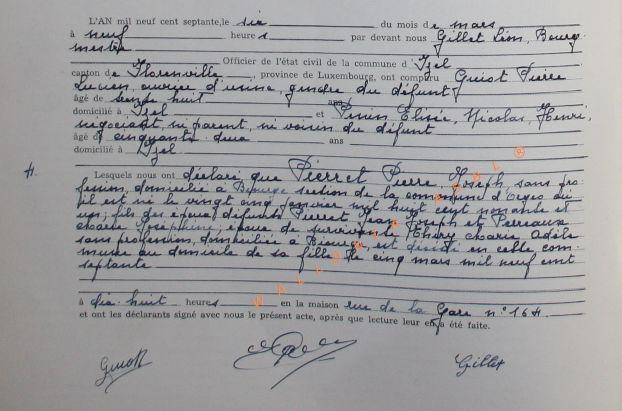 L'AN mil neuf cent septante, le six du mois de mars
à neuf heures par devant nous Gillet Léon, Bourg-
mestre Officier de l'état civil de la commune d'Izel
canton de Florenville, province de Luxembourg, ont comparu Guiot Pierre
Lucien, ouvrier d'usine, gendre du défunt
âgé de huit ans
domicilié à Izel et Elisée, Nicolas, Henri,
négociant, ni parent, ni voisin du défunt
âgé de cinquante deux ans
domicilié à Izel
4.
Lesquels nous ont déclaré que Pierret Pierre, Joseph, sans pro-
fession, domicilié à section de la commune d'
il est né le vingt cinq janvier mil huit cent nonante et
un; fils des époux défunts Pierret Jean Joseph et Perreaux
Marie Joséphine; époux de survivante Thiry Marie Adèle
sans profession, domiciliée à est décédé en cette com-
mune au domicile de sa fille le cinq mars mil neuf cent
septante
WALLONIA
à dix-huit heures en la maison rue de la Gare n° 164
et ont les déclarants signé avec nous le présent acte, après que lecture leur en a été faite.
Guiot
Gillet